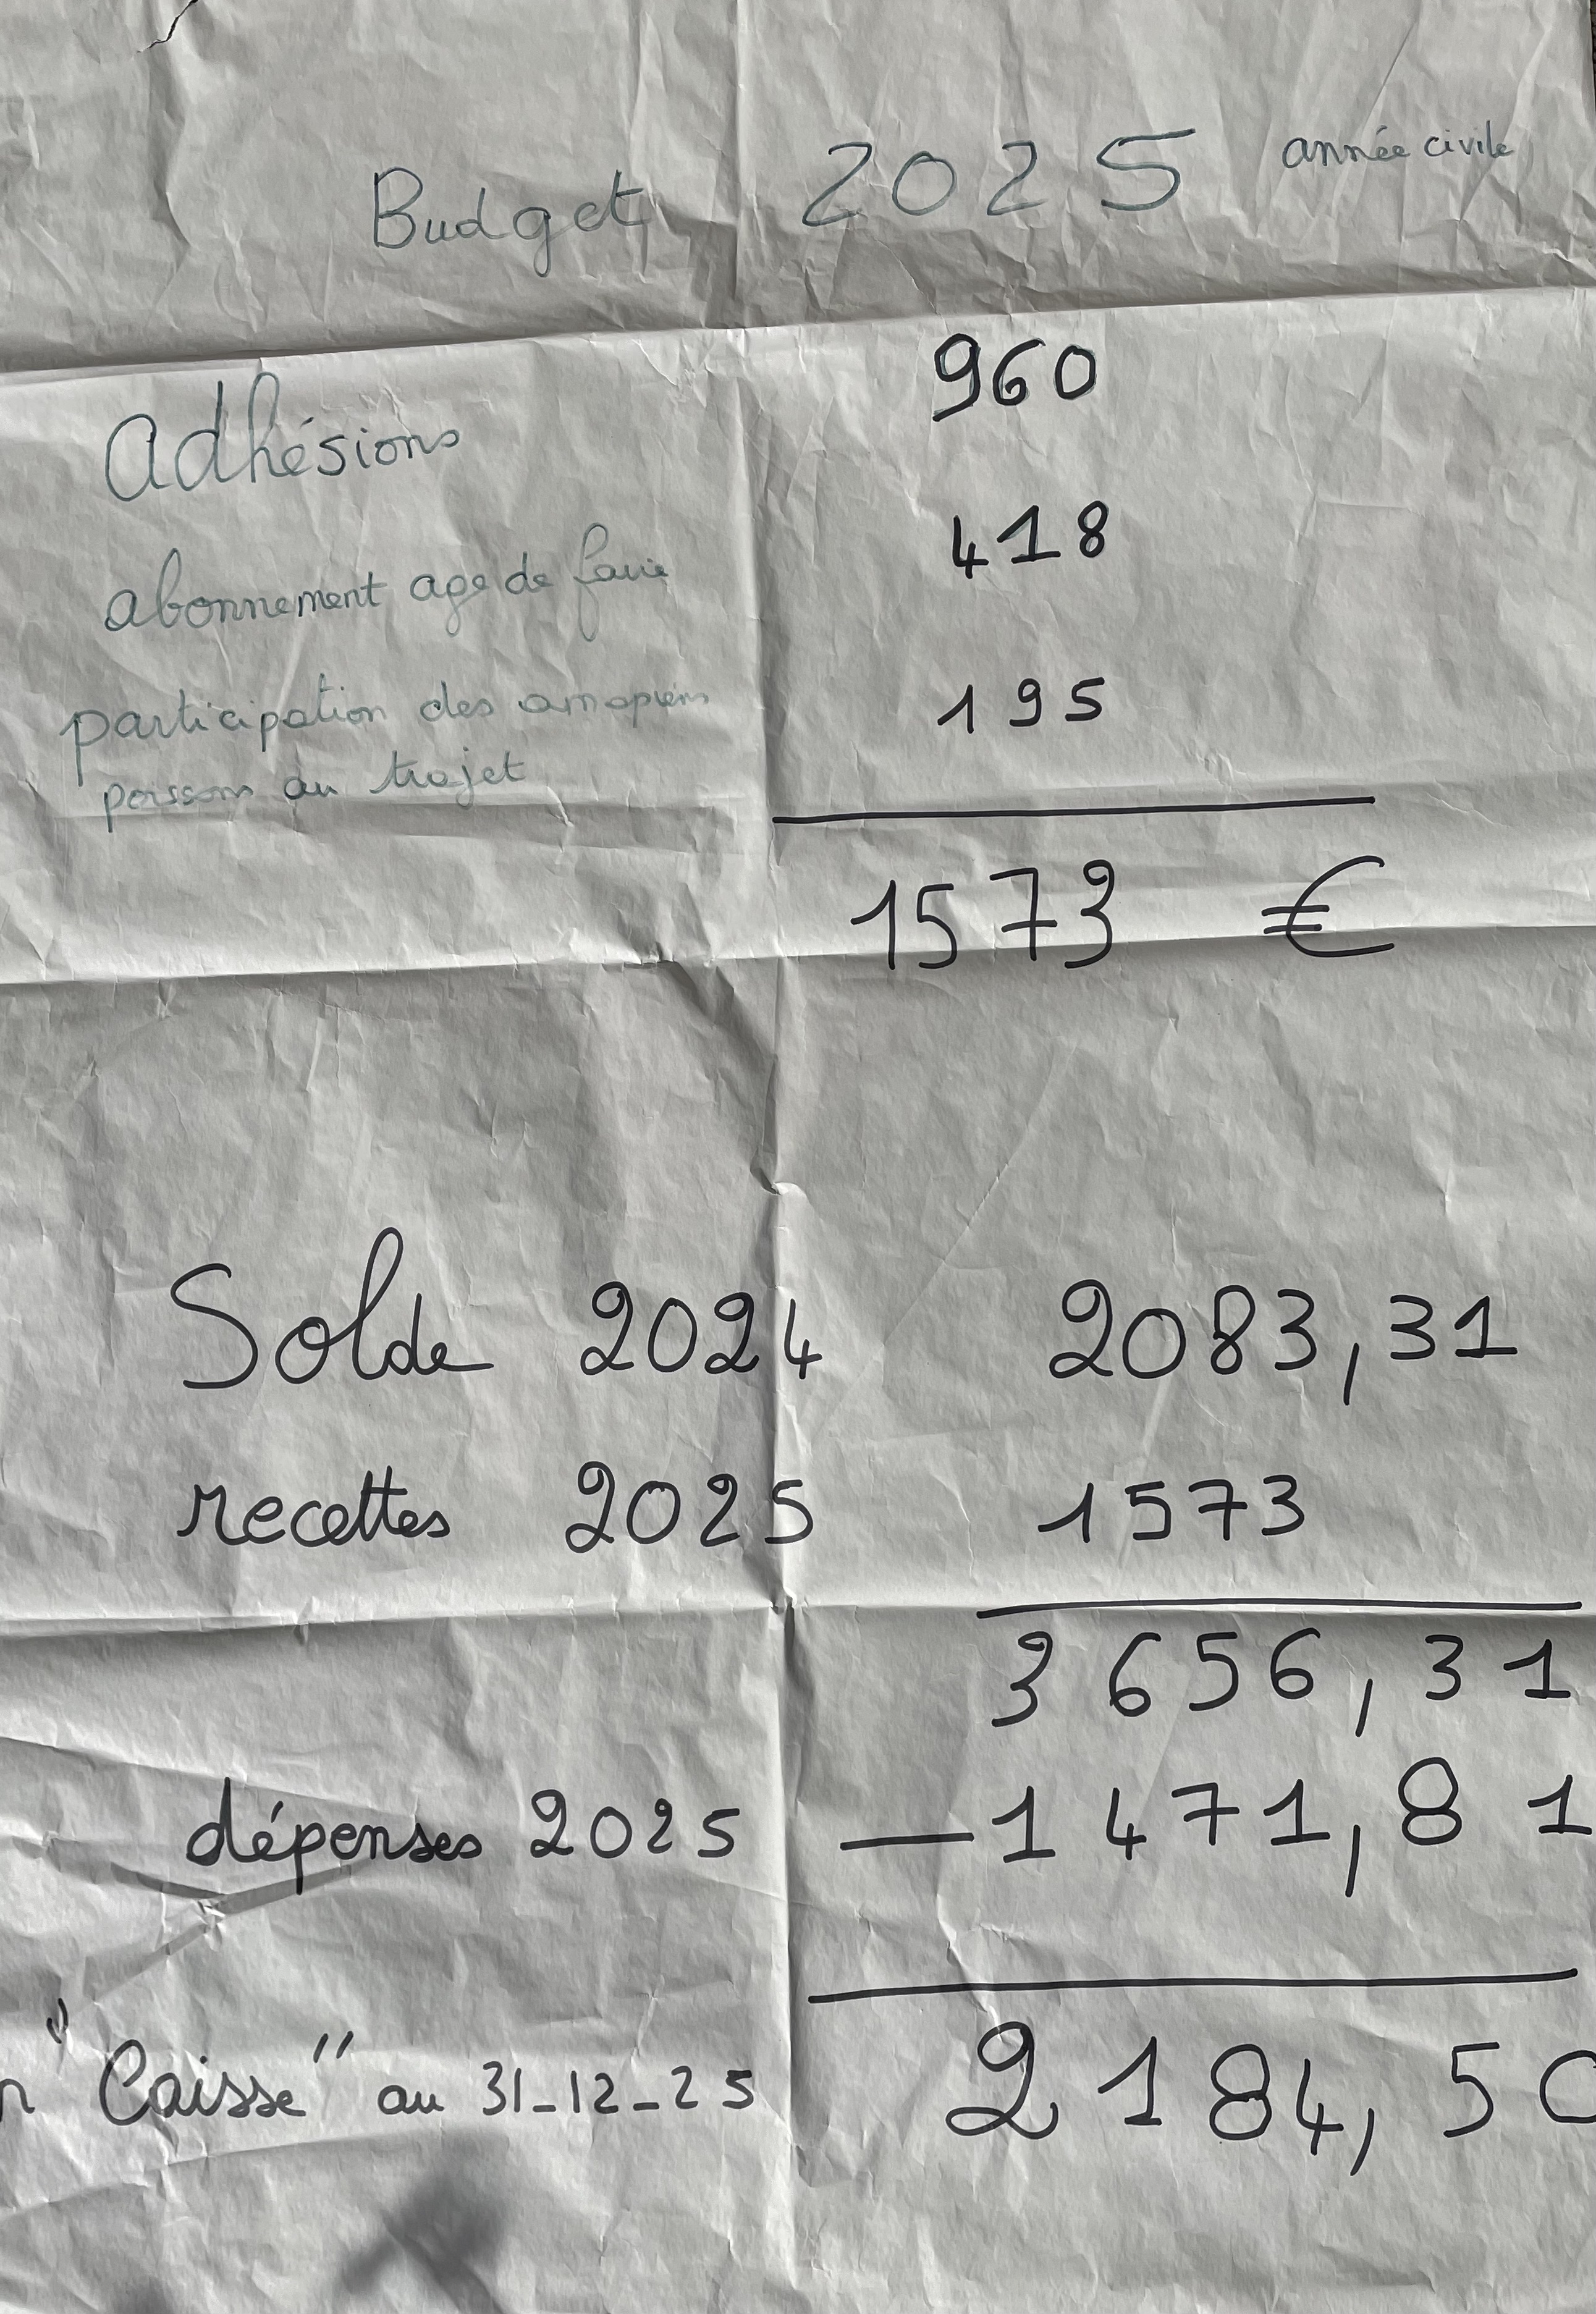 Budget 2025 année civile
960
Adhésions
418
abonnement age de faire
participation des amapiens 195
poissons au trajet
1573 €
Solde 2024 2083,31
recettes 2025 1573
3656,31
dépenses 2025 — 1471,81
"Caisse" au 31-12-25 2184,50